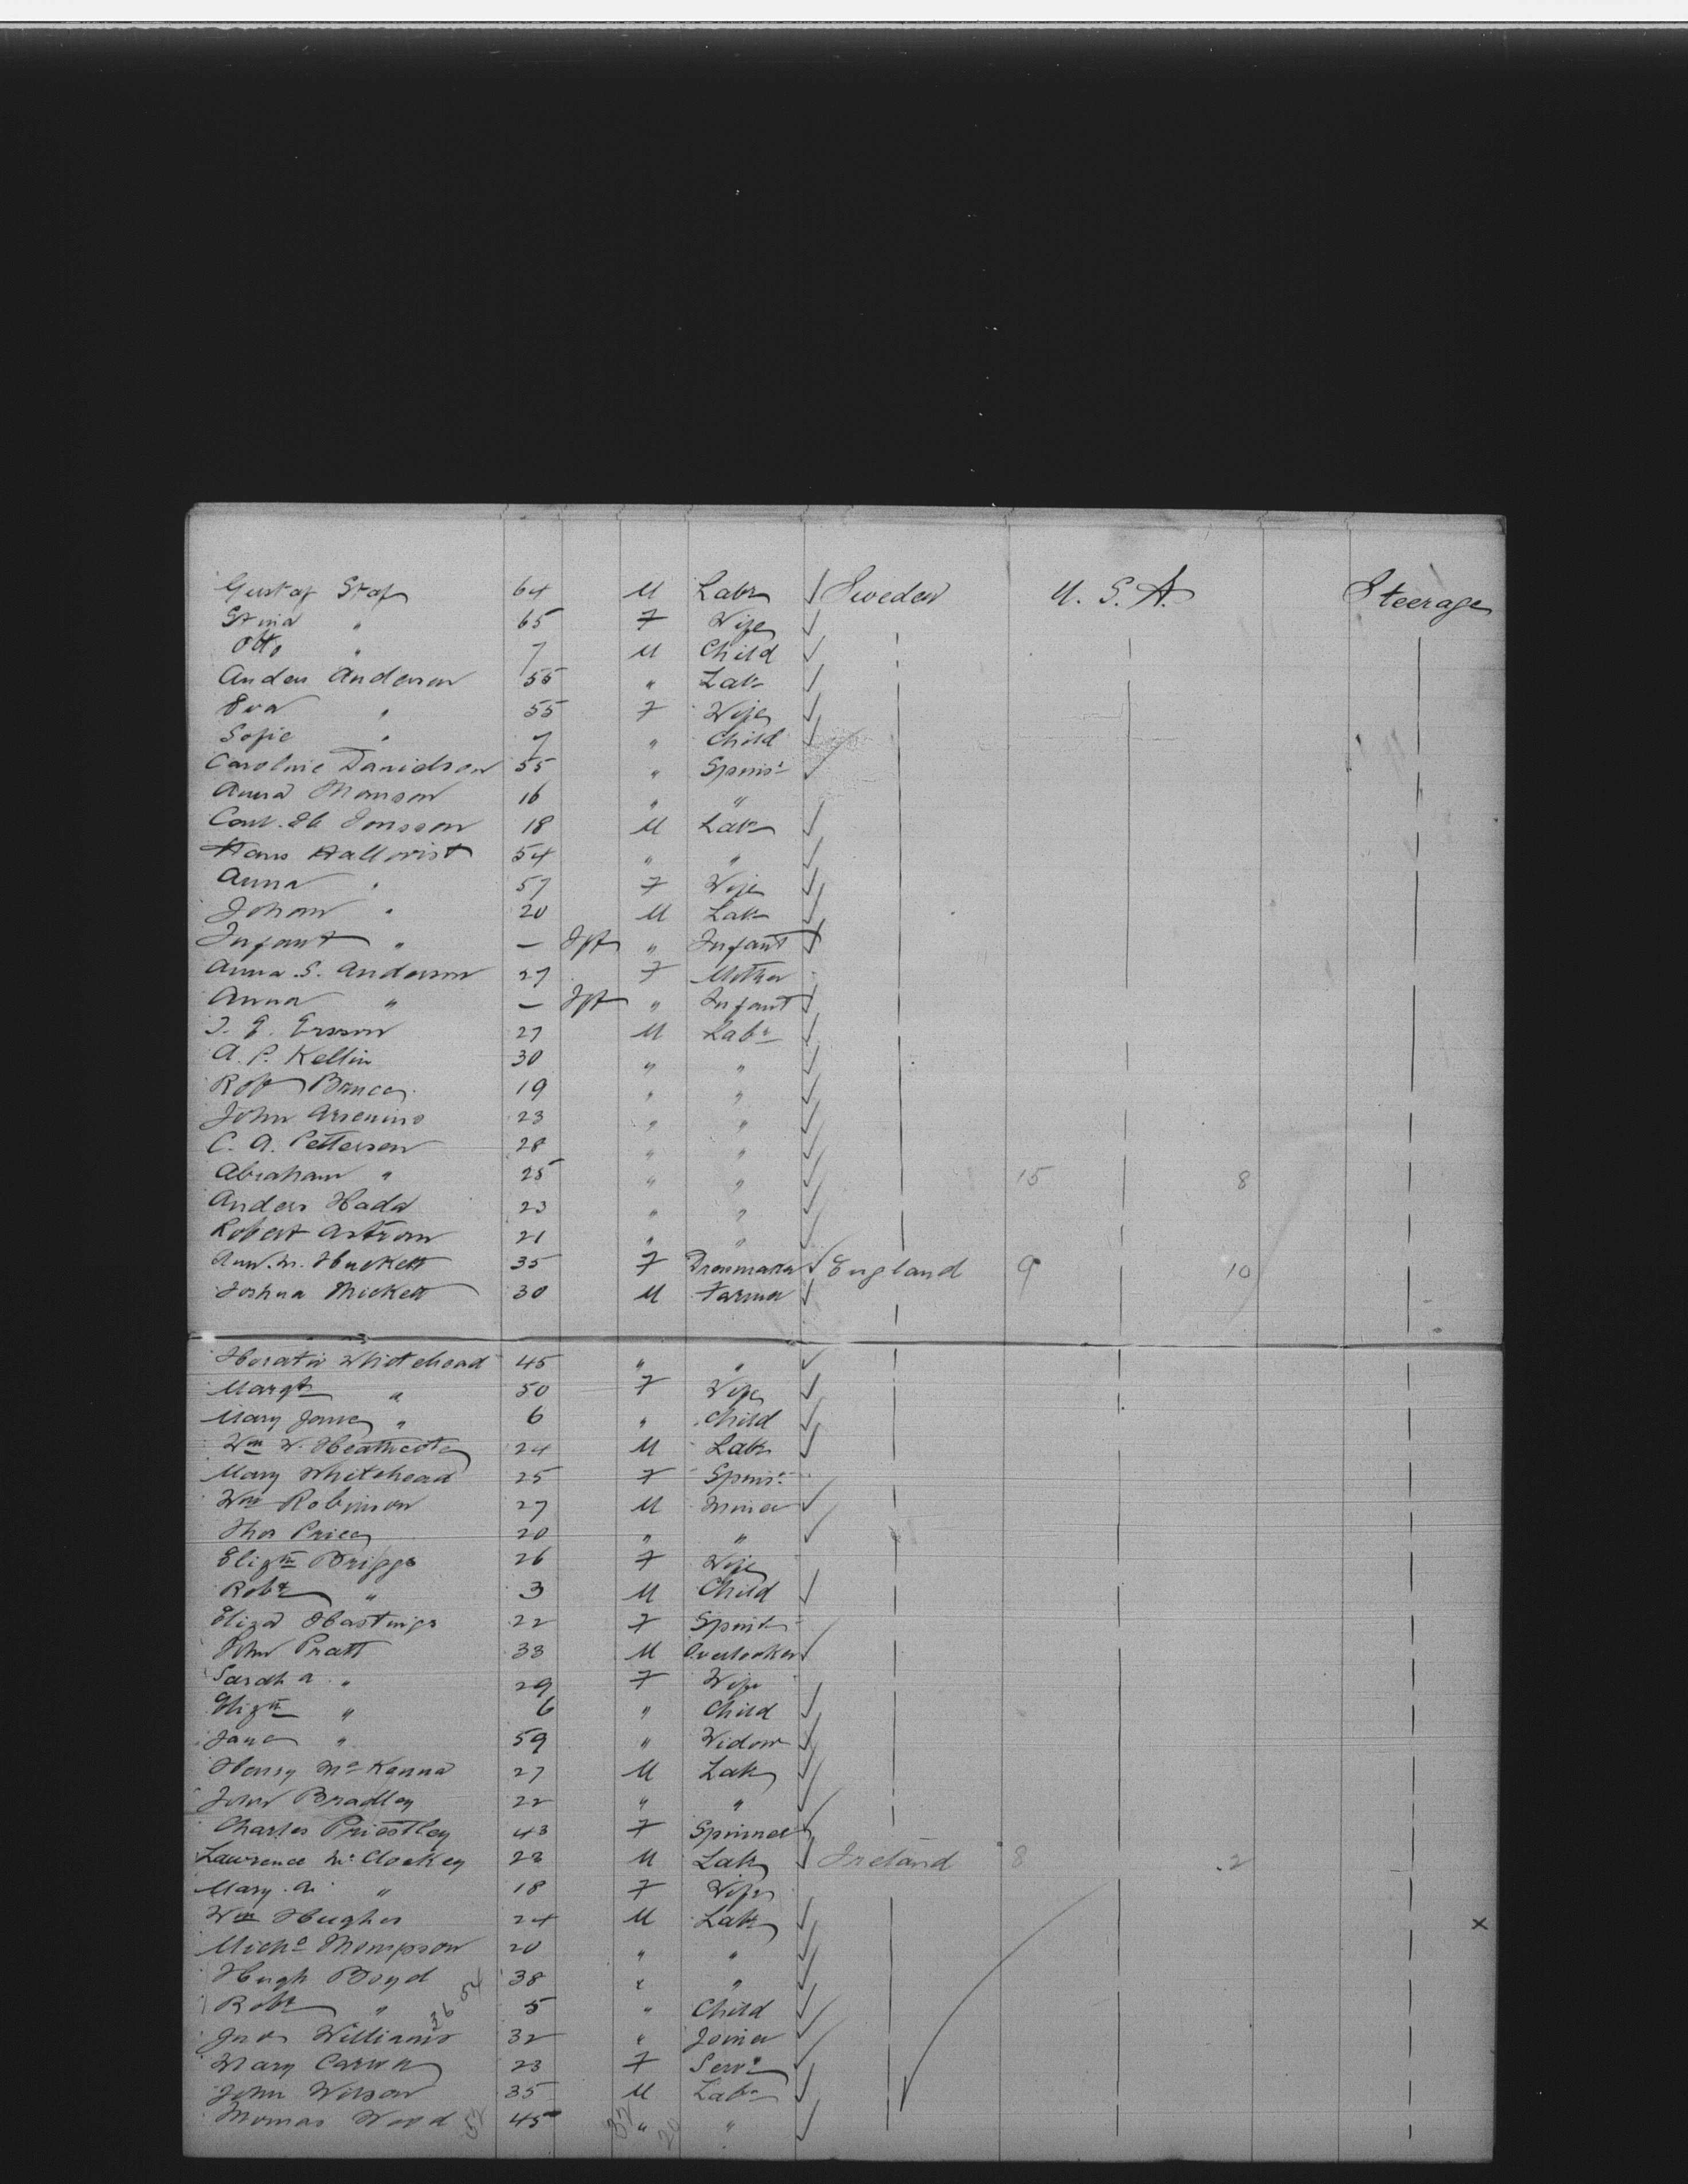 Gustaf Staf 64 M Labr ✓ Sweden U. S. A. Steerage
Stina " 65 F Wife ✓
Otto " 7 M Child ✓
Anders Anderson 55 " Labr ✓
Eva " 55 F Wife ✓
Sofie " 7 " Child ✓
Caroline Davidson 55 " Spinsr ✓
Anna Monson 16 " "
Jonsson 18 M Labr ✓
Hans Hallqvist 54 " " ✓
Anna " 57 F Wife ✓
Johan " 20 M Labr ✓
Infant " — Ift " Infant ✓
Anna S. Anderson 27 F Mother
Anna " — Ift " Infant ✓
J. E. Ersson 27 M Labr ✓
A. P. Kellin 30 " " ✓
Robt Bruce 19 " " ✓
John Arsenius 23 " " ✓
C. A. Petterson 28 " " ✓
Abraham " 25 " " ✓ 15 8
Anders Hada 23 " " ✓
Robert Astrom 21 " " ✓
Ann. M. Huckett 35 F Dressmaker ✓ England 9 10
Joshua 30 M Farmer ✓
Horatio Whitehead 45 " " ✓
Margt " 50 F Wife ✓
Mary Jane " 6 " Child ✓
Wm W. Heathcote 24 M Labr ✓
Mary Whitehead 25 F Spinsr
Wm Robinson 27 M Miner ✓
Thos Price 20 " " ✓
Elizth Briggs 26 F Wife
Robt " 3 M Child ✓
Eliza Hastings 22 F Spinsr
John Pratt 33 M Overlooker ✓
Sarah A. " 29 F Wife
Elizth " 6 " Child ✓
Jane " 59 " Widow ✓
Henry McKenna 27 M Labr ✓
John Bradley 22 " " ✓
Charles Priestley 43 F Spinner ✓
Lawrence McCloskey 28 M Labr ✓ Ireland 8 2
Mary A. " 18 F Wife
Wm Hughes 24 M Labr ✓ x
Michl Thompson 20 " " ✓
Hugh Boyd 54 38 " " ✓
Robt " 36 5 " Child ✓
Jas Williams 32 " Joiner ✓
Mary 23 F Servt ✓
John Wilson 35 M Labr ✓
Thomas Wood 52 45 32 " 20 " ✓